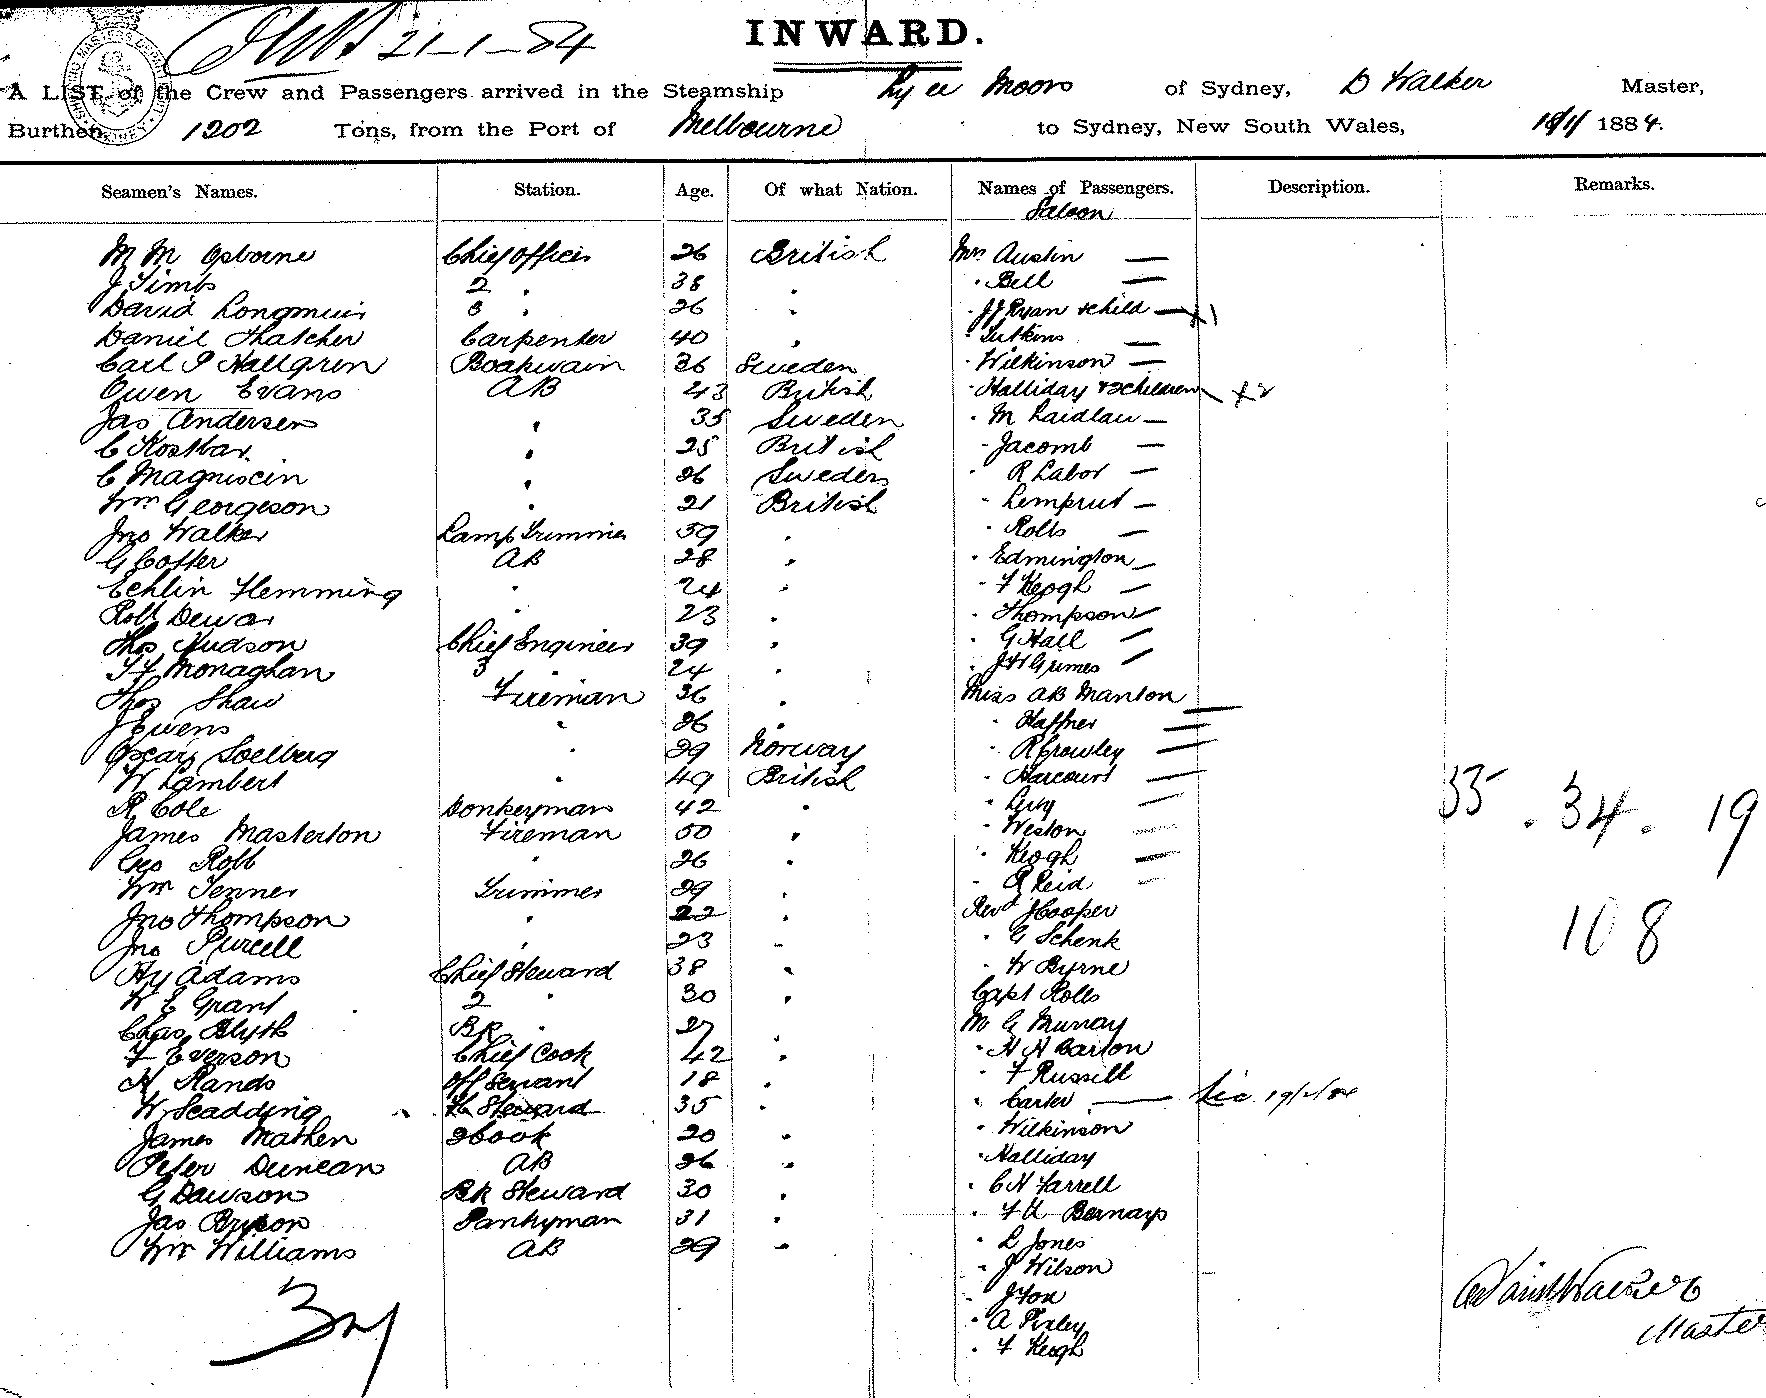 21-1-84
INWARD.
A LIST of the Crew and Passengers arrived in the Steamship Ly ee Moon of Sydney, D Walker Master,
Burthen, 1202 Tons, from the Port of Melbourne to Sydney, New South Wales, 1884.
Seamen's Names. Station. Age. Of what Nation. Names of Passengers. Description. Remarks.
Saloon
M M Osborne Chief Officer 26 British Mrs Austin —
J Timbs 2 " 38 " " Bell —
David Longmuir 3 " 26 " " J J Ryan & child — x1
Daniel Thatcher Carpenter 40 " " —
Carl P Hallgren Boatswain 36 Sweden " Wilkinson —
Owen Evans AB 43 British " Halliday & 2 children x2
Jas Andersen " 35 Sweden " M Laidlaw —
C Kostbar " 25 British " Jacomb —
C Magniscin " 26 Sweden " R Labor —
Wm Georgeson " 21 British " —
Jno Walker Lamp Trimmer 59 " " Rolls —
G Cotter AB 28 " " Edmington —
Echlin Flemming " 24 " " F Keogh —
Robt Dewar " 23 " " Thompson —
Thos Hudson Chief Engineer 39 " " G Hall —
T F Monaghan 3 " 24 " " J H Grimes —
Thos Shaw Fireman 36 " Miss AB Manton —
J Ewens " 26 " " Haffner —
Oscar Soelberg " 29 Norway " R Crowley —
W Lambert " 49 British " Harcourt —
R Cole Donkeyman 42 " " Levy — 35 . 34 . 19
James Masterton Fireman 50 " " Weston —
Geo Robb " 26 " " Keogh —
Wm Jenner Trimmer 29 " " R Reid —
Jno Thompson " 22 " Revd J Cooper 108
Jno Purcell " 23 " " G Schenk
Hy Adams Chief Steward 38 " " W Byrne
W E Grant 2 " 30 " Capt Rolls
Chas Blyth BK " 27 " Mr G Murray
F Everson Chief Cook 42 " " H H Barton
H Rands Off Servant 18 " " F Russell
W Scadding Steward 35 " " Carter —
James Mathen 2 Cook 20 " " Wilkinson
Peter Duncan AB 26 " " Halliday
G Dawson BK Steward 30 " " C H Farrell
Jas Bryson Pantryman 31 " " F U Bernays
Wm Williams AB 29 " " L Jones
" J Wilson
" J Fox
" A Finley
" F Keogh
Master